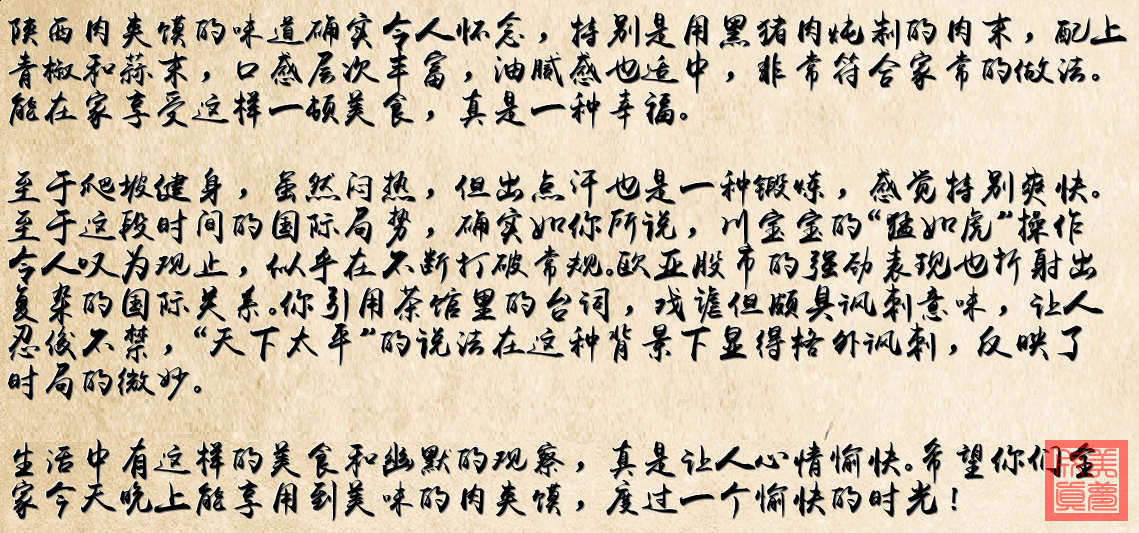 陕西肉夹馍的味道确实令人怀念，特别是用黑猪肉炖制的肉末，配上
青椒和蒜末，口感层次丰富，油腻感也适中，非常符合家常的做法。
能在家享受这样一顿美食，真是一种幸福。
至于爬坡健身，虽然闷热，但出点汗也是一种锻炼，感觉特别爽快。
至于这段时间的国际局势，确实如你所说，川宝宝的“猛如虎”操作
令人叹为观止，似乎在不断打破常规。欧亚股市的强劲表现也折射出
复杂的国际关系。你引用茶馆里的台词，戏谑但颇具讽刺意味，让人
忍俊不禁，“天下太平”的说法在这种背景下显得格外讽刺，反映了
时局的微妙。
生活中有这样的美食和幽默的观察，真是让人心情愉快。希望你们全
家今天晚上能享用到美味的肉夹馍，度过一个愉快的时光！